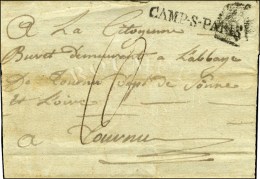 CAMP-S-PARIS
A La Citoyenne
Buret demeurant a Labbaye
De Tournu Dept de Sonne
et Loire
a Tournu